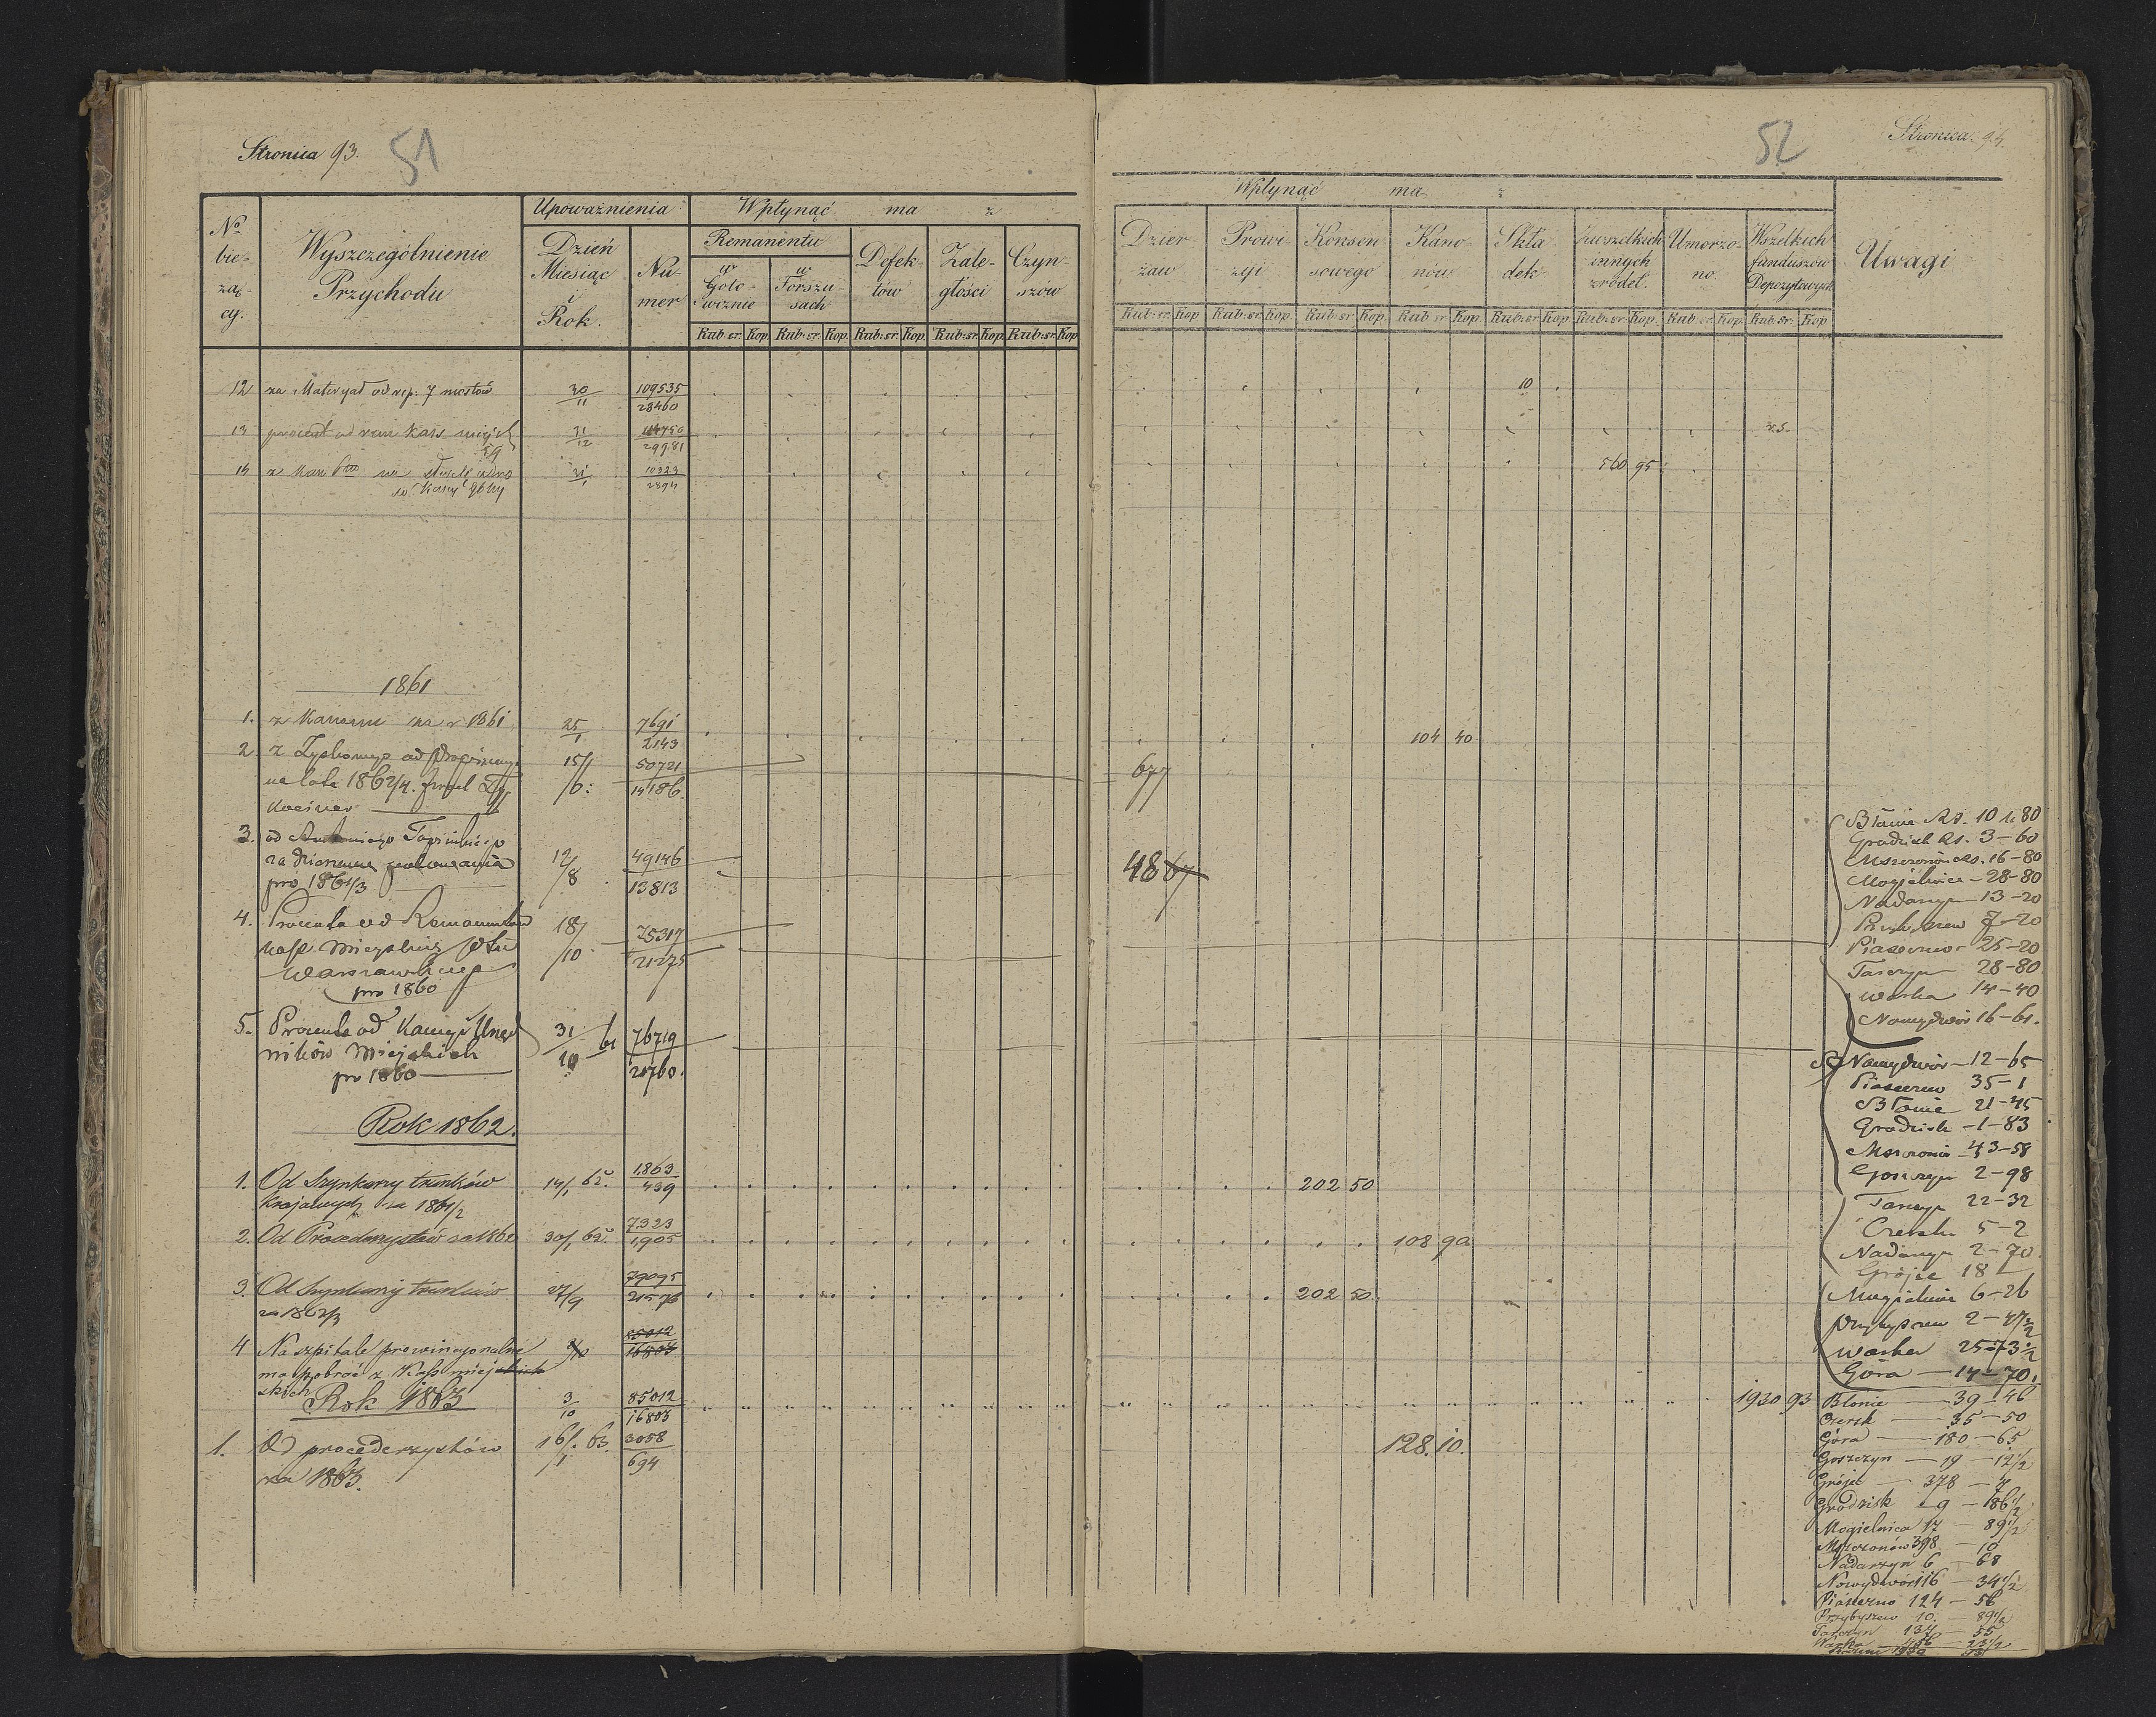 Stronica 93.
51
No bieżący.
Wyszczególnienie Przychodu
Upoważnienia
Dzień Miesiąc i Rok.
Numer
Wpłynąć ma z
Remanentu
w Gotowiznie
w Forszusach
Defektów
Zaległości
Czynszów
Rub: sr. Kop. Rub: sr. Kop. Rub: sr. Kop. Rub: sr. Kop. Rub: sr. Kop
12 za Materyał od rep: 7 mostów 30/11 109535/28460
13 procent od 31/12 29981
14 31/1 10323/2894
1861
1. z na r 1861 25/1 7691/2143
2. z od
na lata 1862/4. 15/6: 50721/14186.
3. od Antoniego
za dzierżawę polowania 12/8 49146/13813
pro 1861/3
4. Procenta od Remanentów 18/10 75317/21275
kass. Miejskich
Warszawskiego
pro 1860
5. Procenta od Kaucyi Urzęd
ników Miejskich 31/10 61 76719/21760.
pro 1860
Rok 1862.
1. Od Szynkarzy trunków 14/1 62. 1863/439
krajowych za 1861/2
2. Od Procederzystów za 1862 30/1 62. 7323/1905
3. Od Szynkarzy trunków 27/9 79095/21576
za 1862/3
4 Na szpitale prowincyonalne 85012/16803
ma pobrać z Kass miejskich
skich
Rok 1863 3/10 85012/16803
1. Od procederzystów 16/1. 63. 3058/694
za 1863.
52
Stronica. 94.
Wpłynąć ma z
Dzierżaw
Prowizyi
Konsensowego
Kanonów
Składek
z wszelkich innych źródeł.
Umorzono.
Wszelkich funduszów Depozytowych
Uwagi
Rub: sr. Kop Rub: sr. Kop. Rub: sr. Kop. Rub: sr. Kop. Rub: sr. Kop. Rub: sr. Kop. Rub: sr. Kop. Rub: sr. Kop
10
560 95
104 40
677
48 67
202 50
108 90
202 50
1930 93
128. 10.
Błonie Rs. 10 k 80
Grodzisk Rs. 3 - 60
Mszczonów Rs. 16 - 80
Mogielnica - 28 - 80
Nadarzyn 13 - 20
7 - 20
Piaseczno 25 - 20
Tarczyn 28 - 80
Warka 14 - 40
Nowydwór 16 - 61.
Nowydwór - 12 - 65
Piaseczno 35 - 1
Błonie 21 - 45
Grodzisk - 1 - 83
Mszczonów - 43 - 58
Goszczyn 2 - 98
Tarczyn 22 - 32
Czersk 5 - 2
Nadarzyn 2 - 70
Grójec 18 -
Mogielnica 6 - 26
Przybyszew 2 - 4 1/2
Warka 25 - 73 1/2
Góra - 14 - 70.
Błonie - 39 - 46
Czersk - 35 - 50
Góra - 180 - 65
Goszczyn - 19 - 12 1/2
Grójec - 378 - 4
Grodzisk - 9 - 86 1/2
Mogielnica 17 - 89 1/2
Mszczonów 398 - 10
Nadarzyn 6 - 68
Nowydwór 116 - 34 1/2
Piaseczno 124 - 56
Przybyszew 10. - 89 1/2
Tarczyn 137 - 55
Warka - 456 - 23 1/2